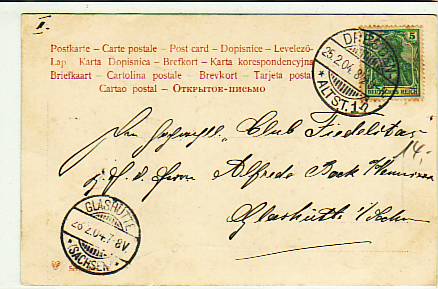 I.
Postkarte – Carte postale – Post card – Dopisnice – Levelező-
Lap Karta Dopisnica – Brefkort – Karta korespondencyjna
Briefkaart – Cartolina postale – Brevkort – Tarjeta postal
Cartao postal – Открытое-письмо
5
DEUTSCHES REICH
DRESDEN
25.2.04. 8
* ALTST. 1
"Club Fidelitas"
14.-
z. H. d. Herrn Alfredo Bock
Glashütte i/Sachsen
GLASHÜTTE
26.2.04.7-8V
* (SACHSEN) *